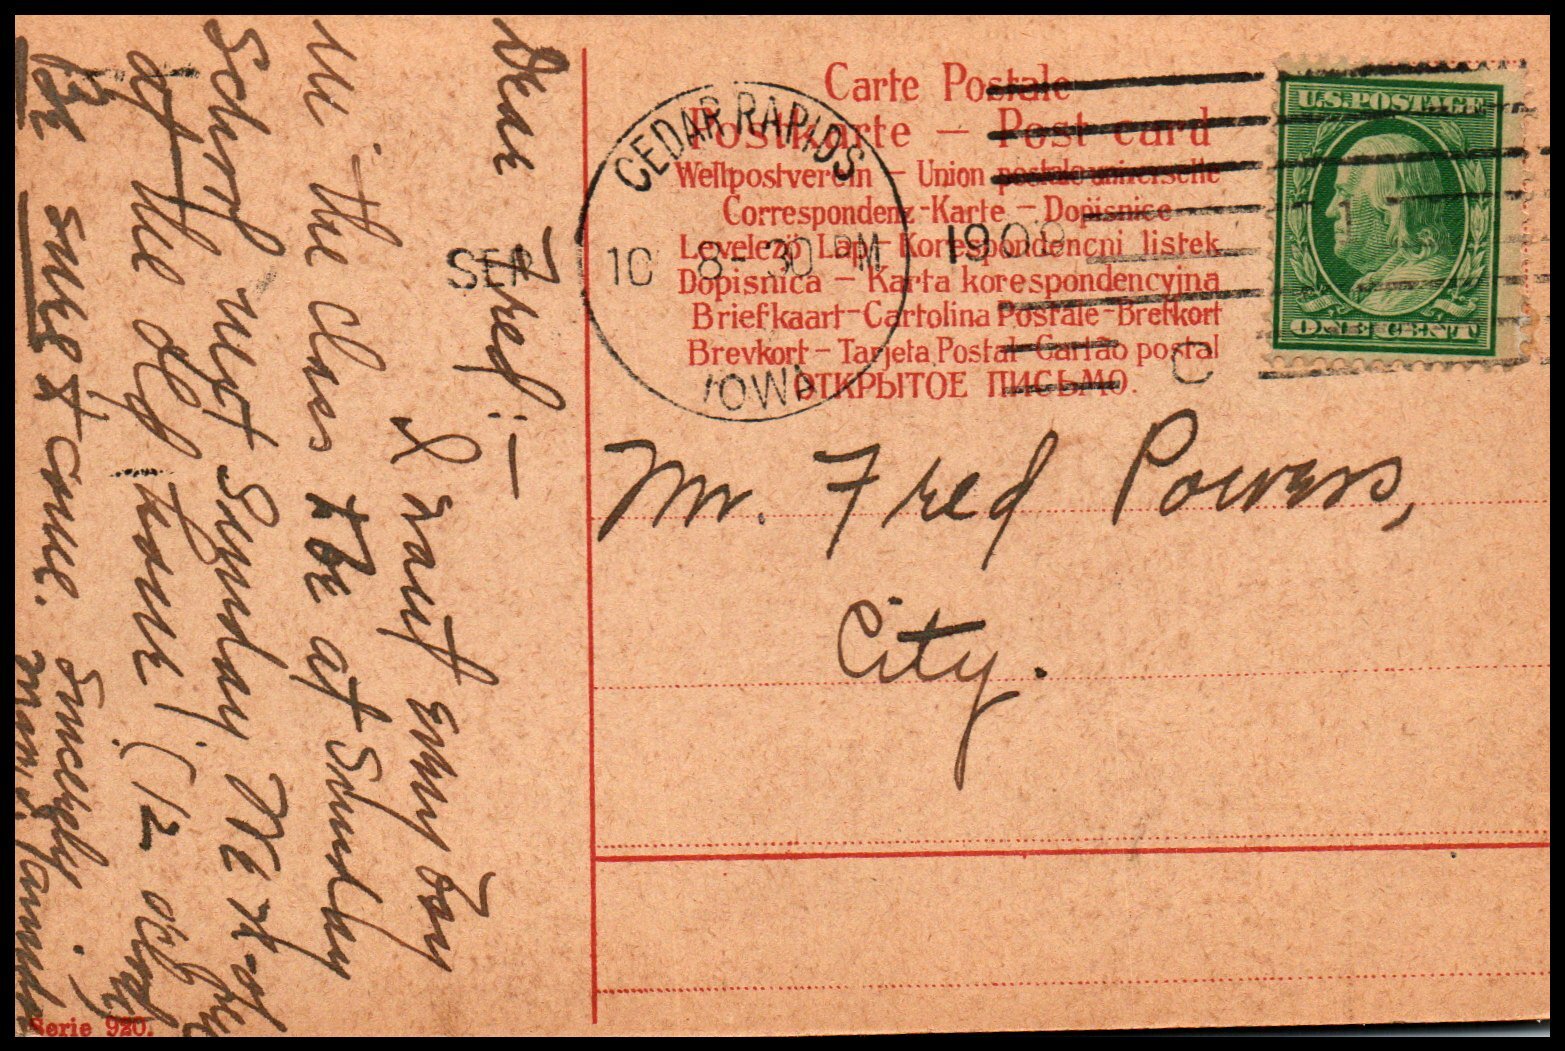 Carte Postale
Postkarte — Post card
Weltpostverein – Union postale universelle
Correspondenz-Karte – Dopisnice
Levelező Lap – Korespondencni listek
Dopisnica – Karta korespondencyjna
Briefkaart – Cartolina Postale – Brefkort
Brevkort – Tarjeta Postal – Cartão postal
ОТКРЫТОЕ ПИСЬМО.
CEDAR RAPIDS
SEP 10 8-30 PM 1908
IOWA
C
U.S. POSTAGE
ONE CENT
Mr. Fred Powers,
City.
Dear Fred:—
I want every boy
in the class to be at Sunday
School next Sunday. We
at the old
Be sure & come.
Sincerely
Serie 920.